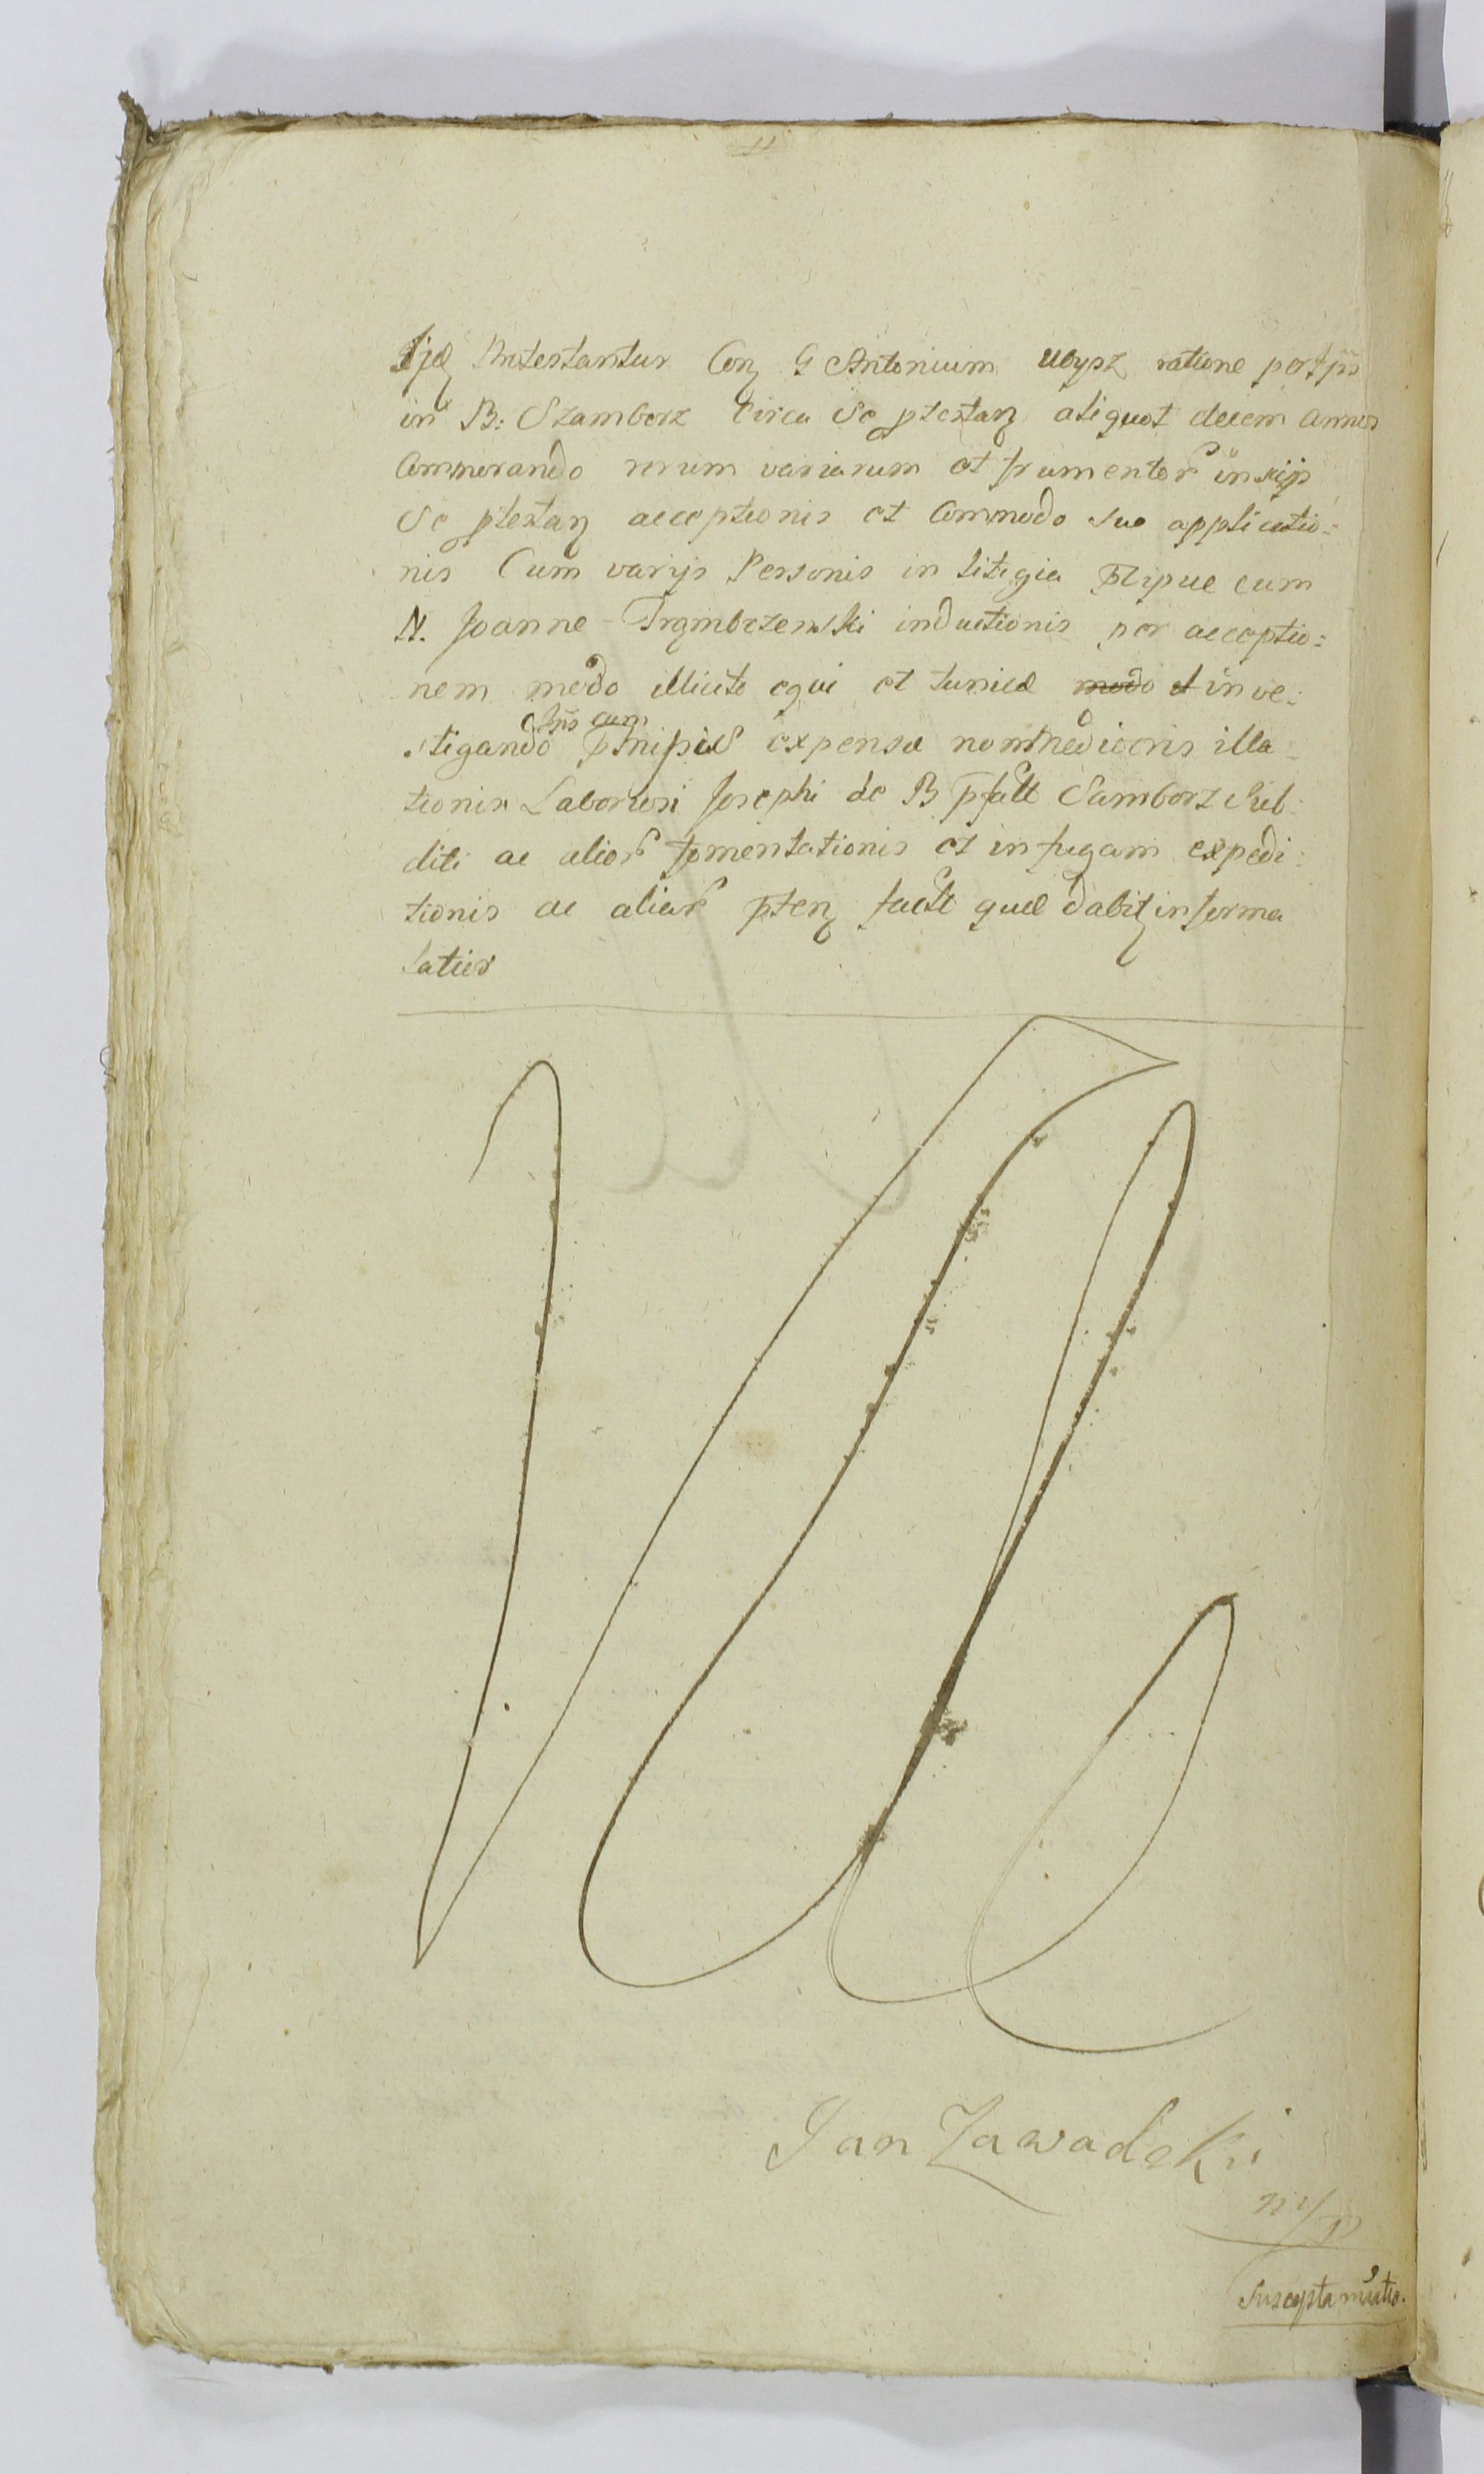 Ijdem Protestantur Con G Antonium Ubysz ratione per
in B: Szamborz Circa Se ptestan aliquot decem annos
Commorando rerum variarum et frumentor
Se ptestan acceptionis et Commodo suo applicatio=
nis Cum varijs Personis in litigia cum
N. Joanne Trąmbczewski inductionis per acceptio=
nem modo illicito equi et tunicæ modo et inve=
stigando cum expensæ non mediocris illa=
tionis Laboriosi Josephi de B Samborz Sub=
diti ac alior fomentationis et in fugam expedi=
tionis ac aliar quæ dabit informa
latius
Jan Zawadzki
m/p
Susceptamutio.